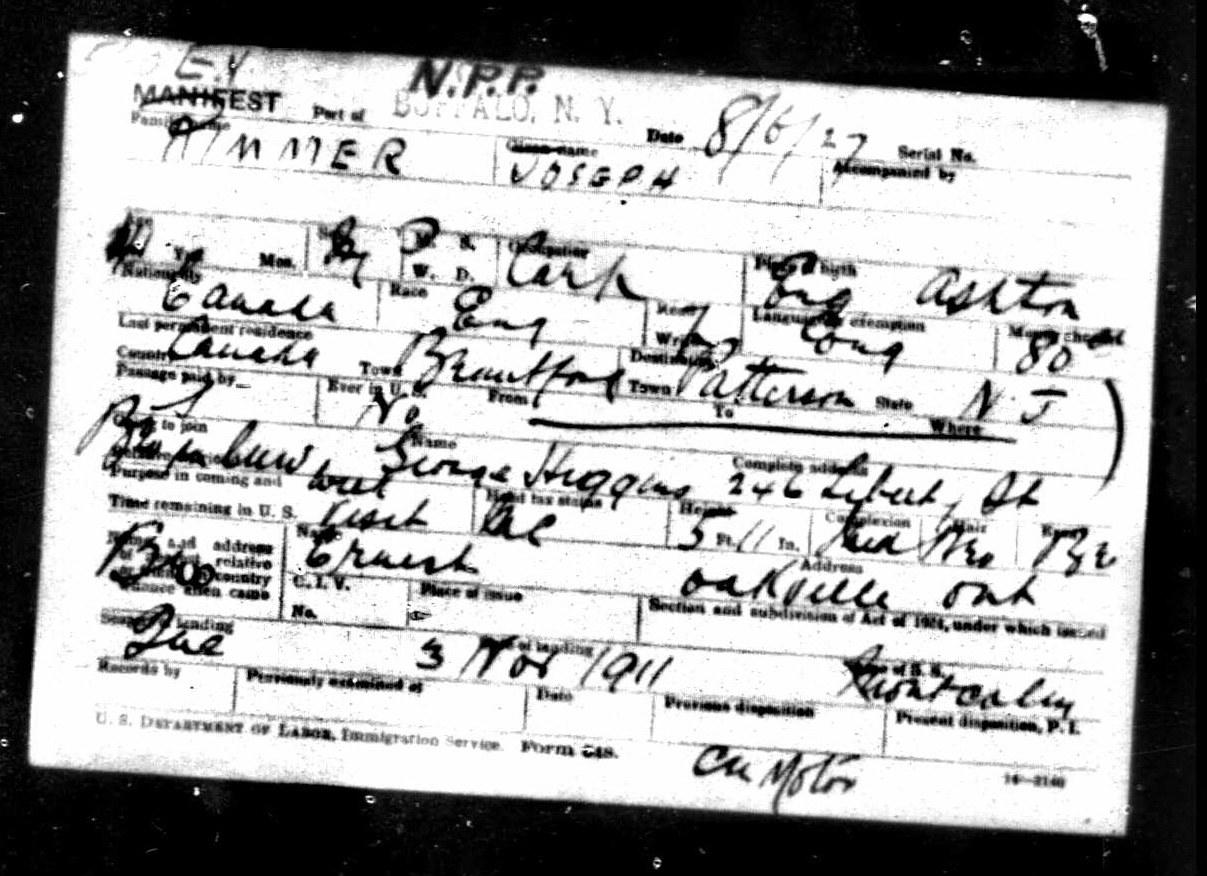 E.V. N.P.P.
MANIFEST Port of BUFFALO, N. Y. Date 8/6/27 Serial No.
Family name RIMMER Given name JOSEPH Accompanied by
Yrs. Mos. Sex M. S. W. D. Occupation Place of birth Eng Ashton
Nationality Canada Race Eng Read Write Language or exemption Eng Money showed 80
Last permanent residence
Country Canada Town Brantford Destination Town Patterson State N. J
Passage paid by Self Ever in U. S. No From To Where
Going to join Name George Higgins Complete address 246 Liberty St
Purpose in coming and
Time remaining in U. S. Visit Head tax status Height 5 Ft. 11 In. Complexion Hair Bro Eyes
Name and address of relative country whence alien came Bro Name Ernest Address Oakville Ont
C. I. V. No. Place of issue Section and subdivision of Act of 1924, under which issued
Seaport of landing Que Date of landing 3 Nov 1911 Name of S. S. Montcalm
Records by Previously examined at Date Previous disposition Present disposition, P. I.
U. S. DEPARTMENT OF LABOR, Immigration Service. Form 548. Motor 14—2140